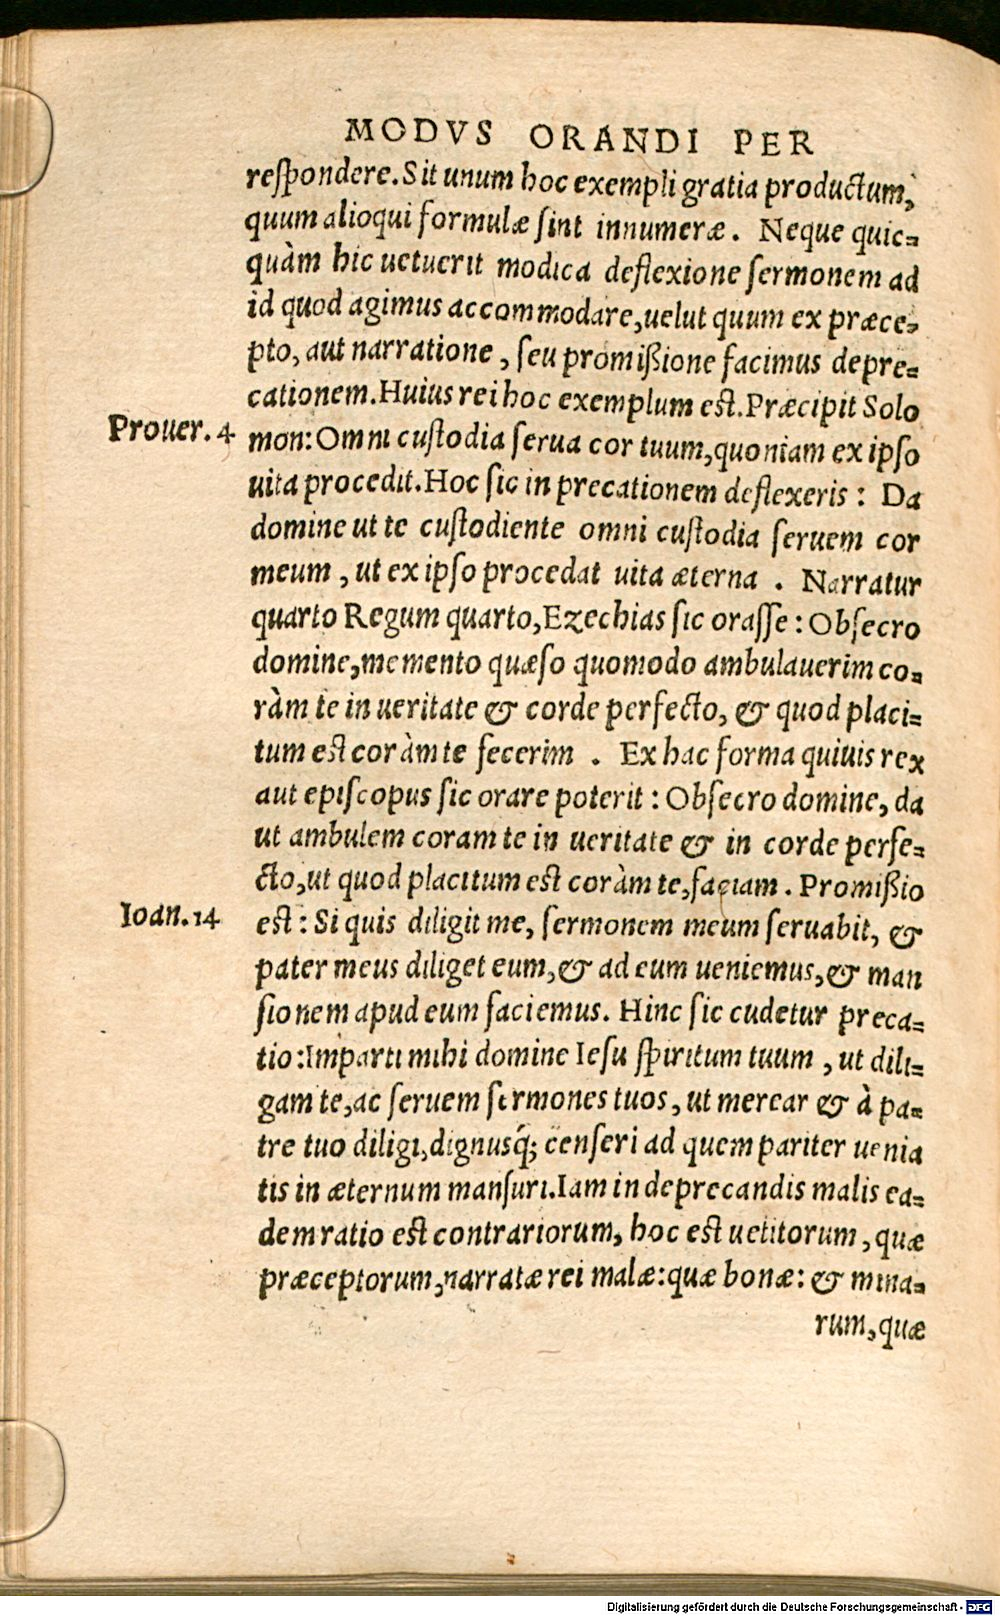 MODVS ORANDI PER
respondere. Sit unum hoc exempli gratia productum,
quum alioqui formulæ sint innumeræ. Neque quic=
quàm hic uetuerit modica deflexione sermonem ad
id quod agimus accommodare, uelut quum ex præce=
pto, aut narratione, seu promißione facimus depre=
cationem. Huius rei hoc exemplum est. Præcipit Solo
Prouer. 4
mon: Omni custodia serua cor tuum, quoniam ex ipso
uita procedit. Hoc sic in precationem deflexeris: Da
domine ut te custodiente omni custodia seruem cor
meum, ut ex ipso procedat uita æterna. Narratur
quarto Regum quarto, Ezechias sic orasse: Obsecro
domine, memento quæso quomodo ambulauerim co=
ràm te in ueritate & corde perfecto, & quod placi=
tum est coràm te fecerim. Ex hac forma quiuis rex
aut episcopus sic orare poterit: Obsecro domine, da
ut ambulem coram te in ueritate & in corde perfe=
cto, ut quod placitum est coràm te, faciam. Promißio
Ioan. 14
est: Si quis diligit me, sermonem meum seruabit, &
pater meus diliget eum, & ad eum ueniemus, & man
sionem apud eum faciemus. Hinc sic cudetur preca=
tio: Imparti mihi domine Iesu spiritum tuum, ut dili=
gam te, ac seruem sermones tuos, ut merear & à pa=
tre tuo diligi, dignusq́; censeri ad quem pariter uenia
tis in æternum mansuri. Iam in deprecandis malis ea=
dem ratio est contrariorum, hoc est uetitorum, quæ
præceptorum, narratæ rei malæ: quæ bonæ: & mina=
rum, quæ
Digitalisierung gefördert durch die Deutsche Forschungsgemeinschaft - DFG